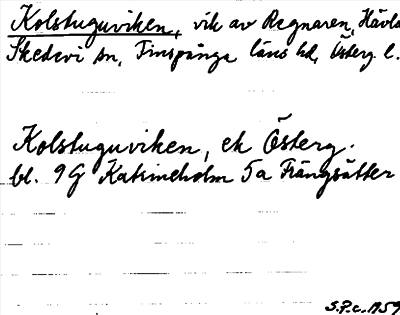 Kolstuguviken, vik av Regnaren, Hävla
Skedevi sn, Finspånga läns hd, Österg. l.
Kolstuguviken, ek Österg.
bl. 9G Katrineholm 5a Trängsätter
S.P.c. 1959